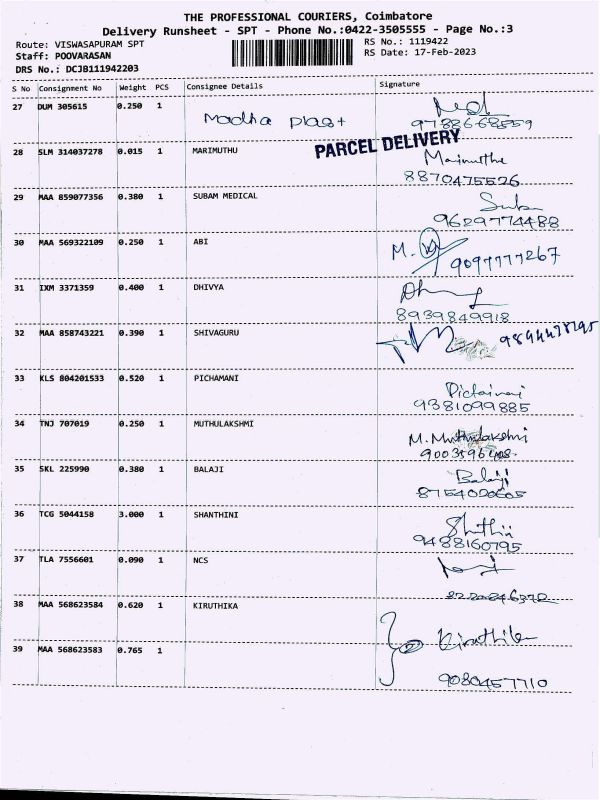 THE PROFESSIONAL COURIERS, Coimbatore
Delivery Runsheet - SPT - Phone No.:0422-3505555 - Page No.:3
Route: VISWASAPURAM SPT
Staff: POOVARASAN
DRS No.: DCJB111942203
RS No.: 1119422
RS Date: 17-Feb-2023
S No Consignment No Weight PCS Consignee Details Signature
27 DUM 305615 0.250 1 Madha plast
9788668559
PARCEL DELIVERY
28 SLM 314037278 0.015 1 MARIMUTHU
8870475526
29 MAA 859077356 0.380 1 SUBAM MEDICAL
9629774488
30 MAA 569322109 0.250 1 ABI M.
9097777267
31 IXM 3371359 0.400 1 DHIVYA
8939849918
32 MAA 858743221 0.390 1 SHIVAGURU
33 KLS 804201533 0.520 1 PICHAMANI
9381099885
34 TNJ 707019 0.250 1 MUTHULAKSHMI M. Muthulakshmi
9003596408
35 SKL 225990 0.380 1 BALAJI Balaji
8754020605
36 TCG 5044158 3.000 1 SHANTHINI
9488160795
37 TLA 7556601 0.090 1 NCS
38 MAA 568623584 0.620 1 KIRUTHIKA Kiruthika
39 MAA 568623583 0.765 1
9080457710